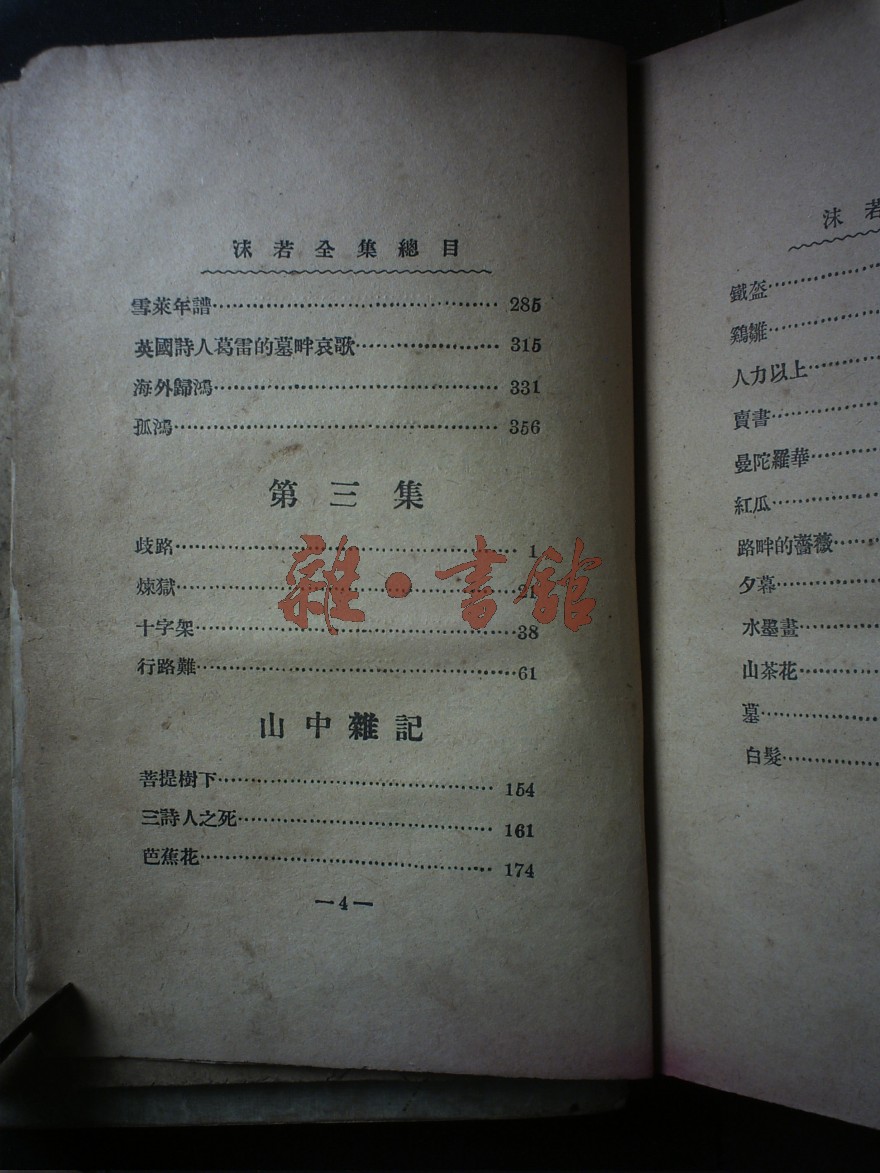 沫若全集總目
雪萊年譜 285
英國詩人葛雷的墓畔哀歌 315
海外歸鴻 331
孤鴻 356
第三集
歧路 1
煉獄 21
十字架 38
行路難 61
雜·書館
山中雜記
菩提樹下 154
三詩人之死 161
芭蕉花 174
—4—
沫若
鐵盔
鷄雛
人力以上
賣書
曼陀羅華
紅瓜
路畔的薔薇
夕暮
水墨畫
山茶花
墓
白髮